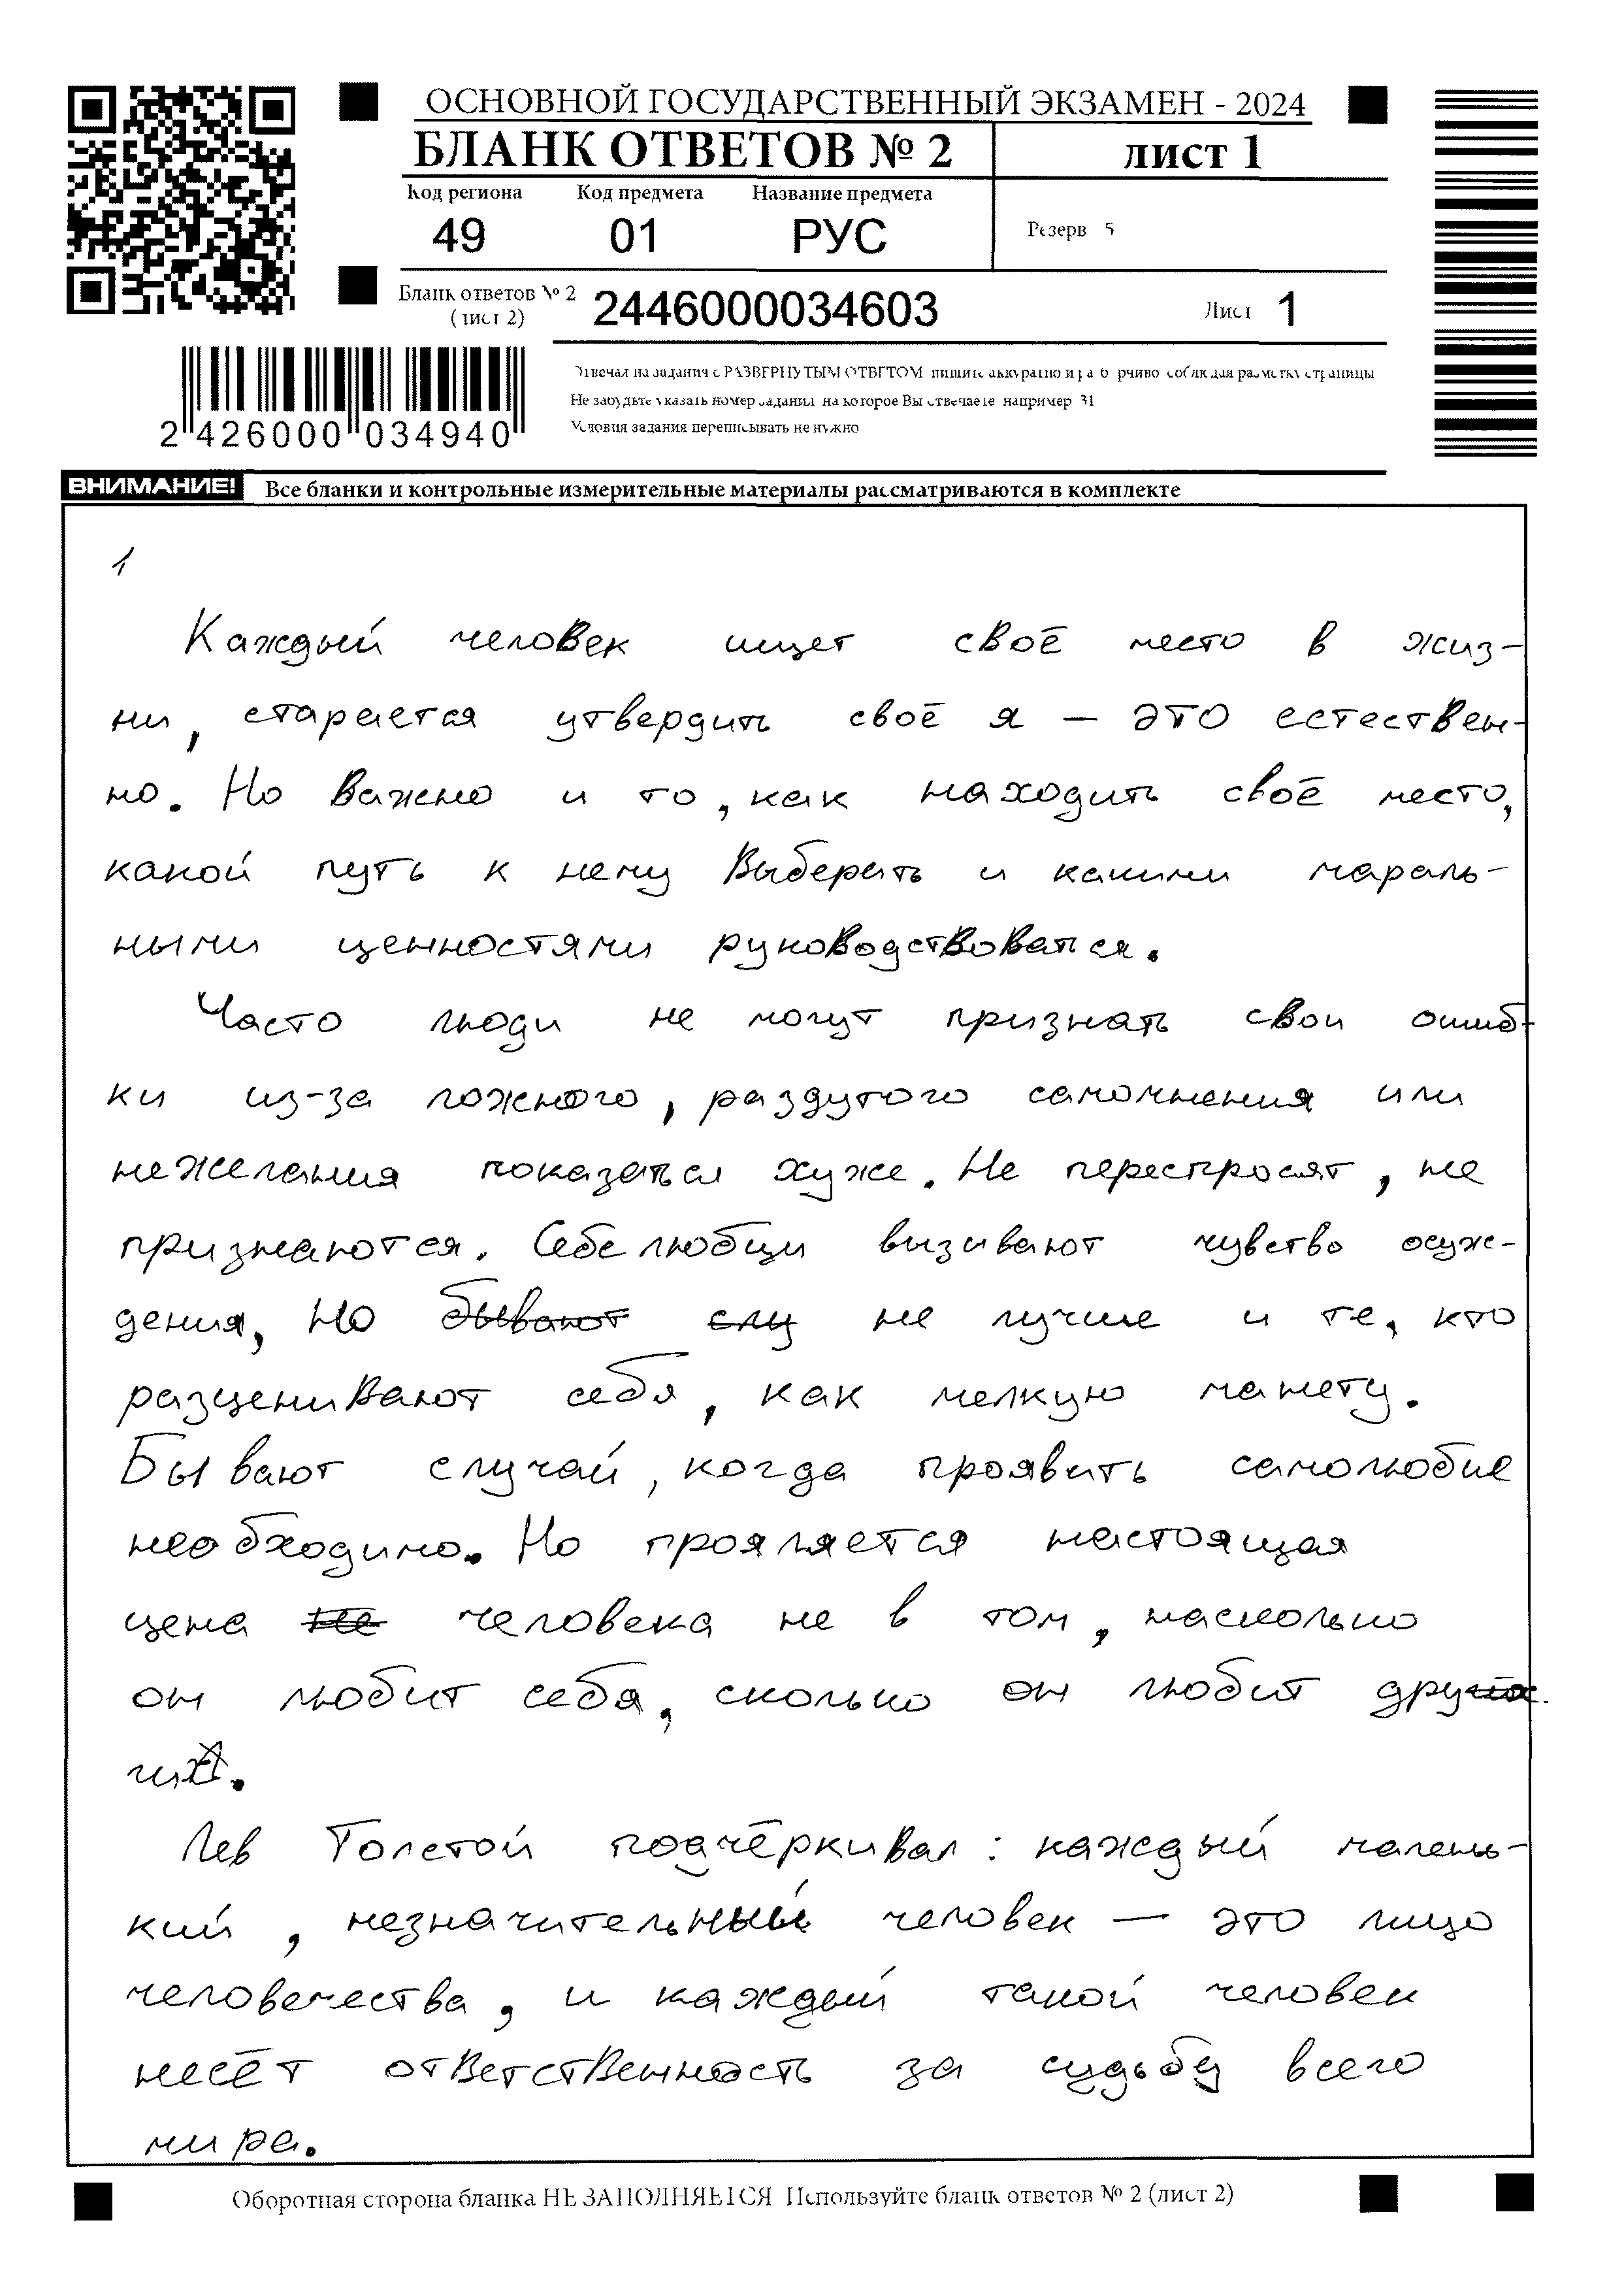 ОСНОВНОЙ ГОСУДАРСТВЕННЫЙ ЭКЗАМЕН - 2024
БЛАНК ОТВЕТОВ № 2 лист 1
Код региона Код предмета Название предмета
49 01 РУС Резерв 5
Бланк ответов № 2 2446000034603 Лист 1
(лист 2)
2 426000 034940
Отвечая на задания с РАЗВЕРНУТЫМ ОТВЕТОМ, пишите аккуратно и разборчиво, соблюдая разметку страницы
Не забудьте указать номер задания, на которое Вы отвечаете, например 31
Условия задания переписывать не нужно
ВНИМАНИЕ! Все бланки и контрольные измерительные материалы рассматриваются в комплекте
1
Каждый человек ищет своё место в жиз-
ни, старается утвердить своё я — это естествен-
но. Но важно и то, как находить своё место,
какой путь к нему выберать и какими мараль-
ными ценностями руководствоваться.
Часто люди не могут признать свои ошиб-
ки из-за ложного, раздутого самомнения или
нежелания показаться хуже. Не переспросят, не
признаются. Себелюбци визивают чувство осуж-
дения, но бывают слу не лучше и те, кто
разценивают себя, как мелкую манету.
Бывают случай, когда проявить самолюбие
необходимо. Но прояляется настоящая
цена не человека не в том, насколько
он любит себя, сколько он любит дру
гих.
Лев Толстой подчёркивал: каждый малень-
кий, незначительный человек — это лицо
человечества, и каждый такой человек
несёт ответственность за судьбу всего
мира.
Оборотная сторона бланка НЕ ЗАПОЛНЯЕТСЯ Используйте бланк ответов № 2 (лист 2)